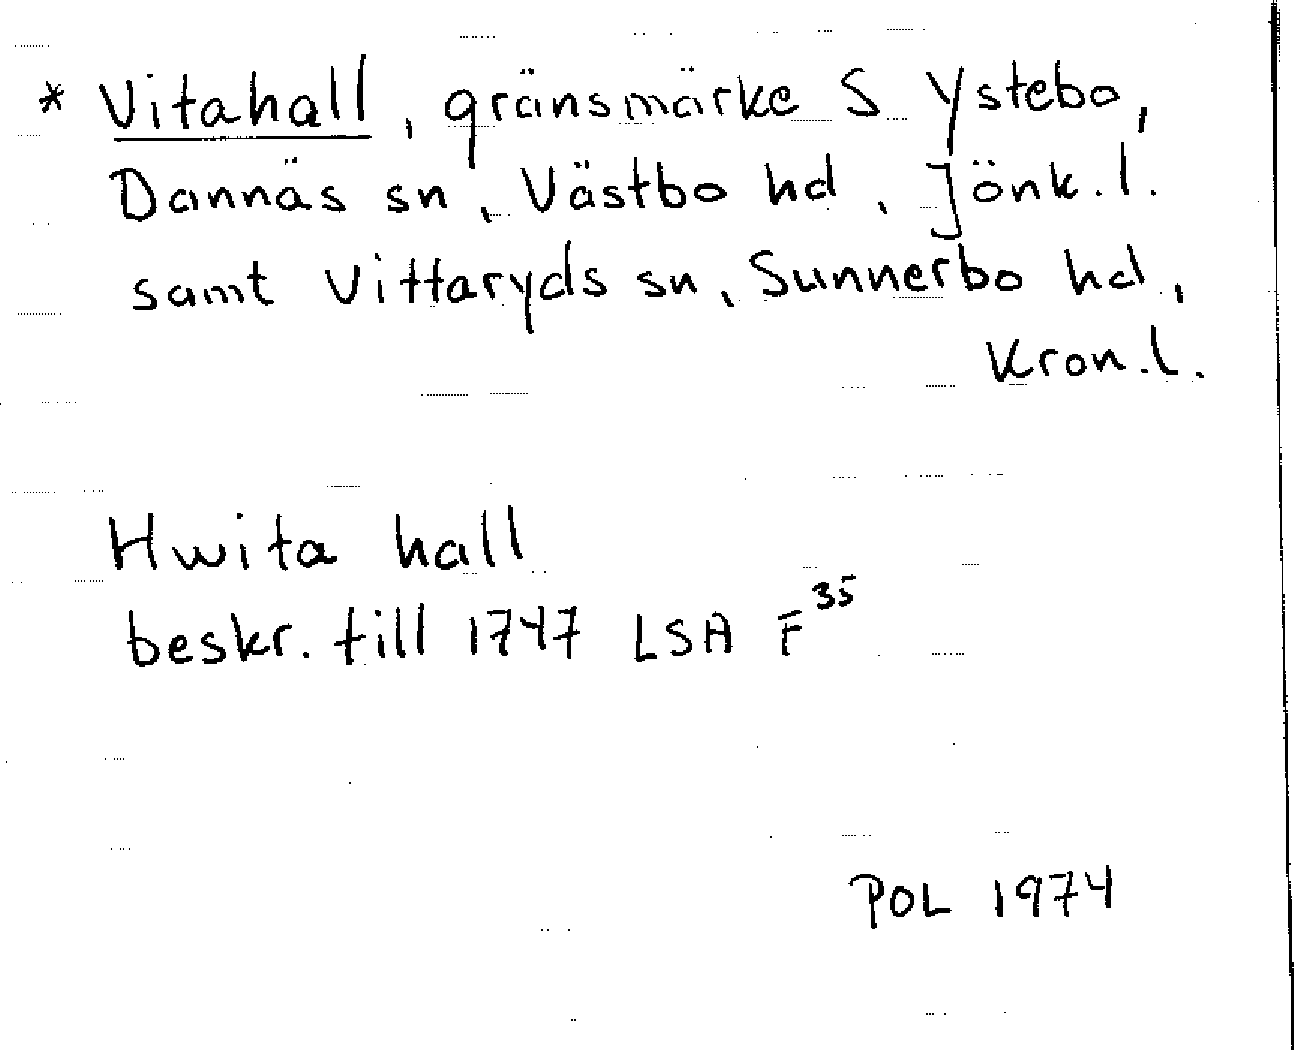 * Vitahall, gränsmärke S Ystebo,
Dannäs sn, Västbo hd, Jönk.l.
samt Vittaryds sn, Sunnerbo hd,
Kron.l.
Hwita hall
beskr. till 1747 LSA F³⁵
POL 1974